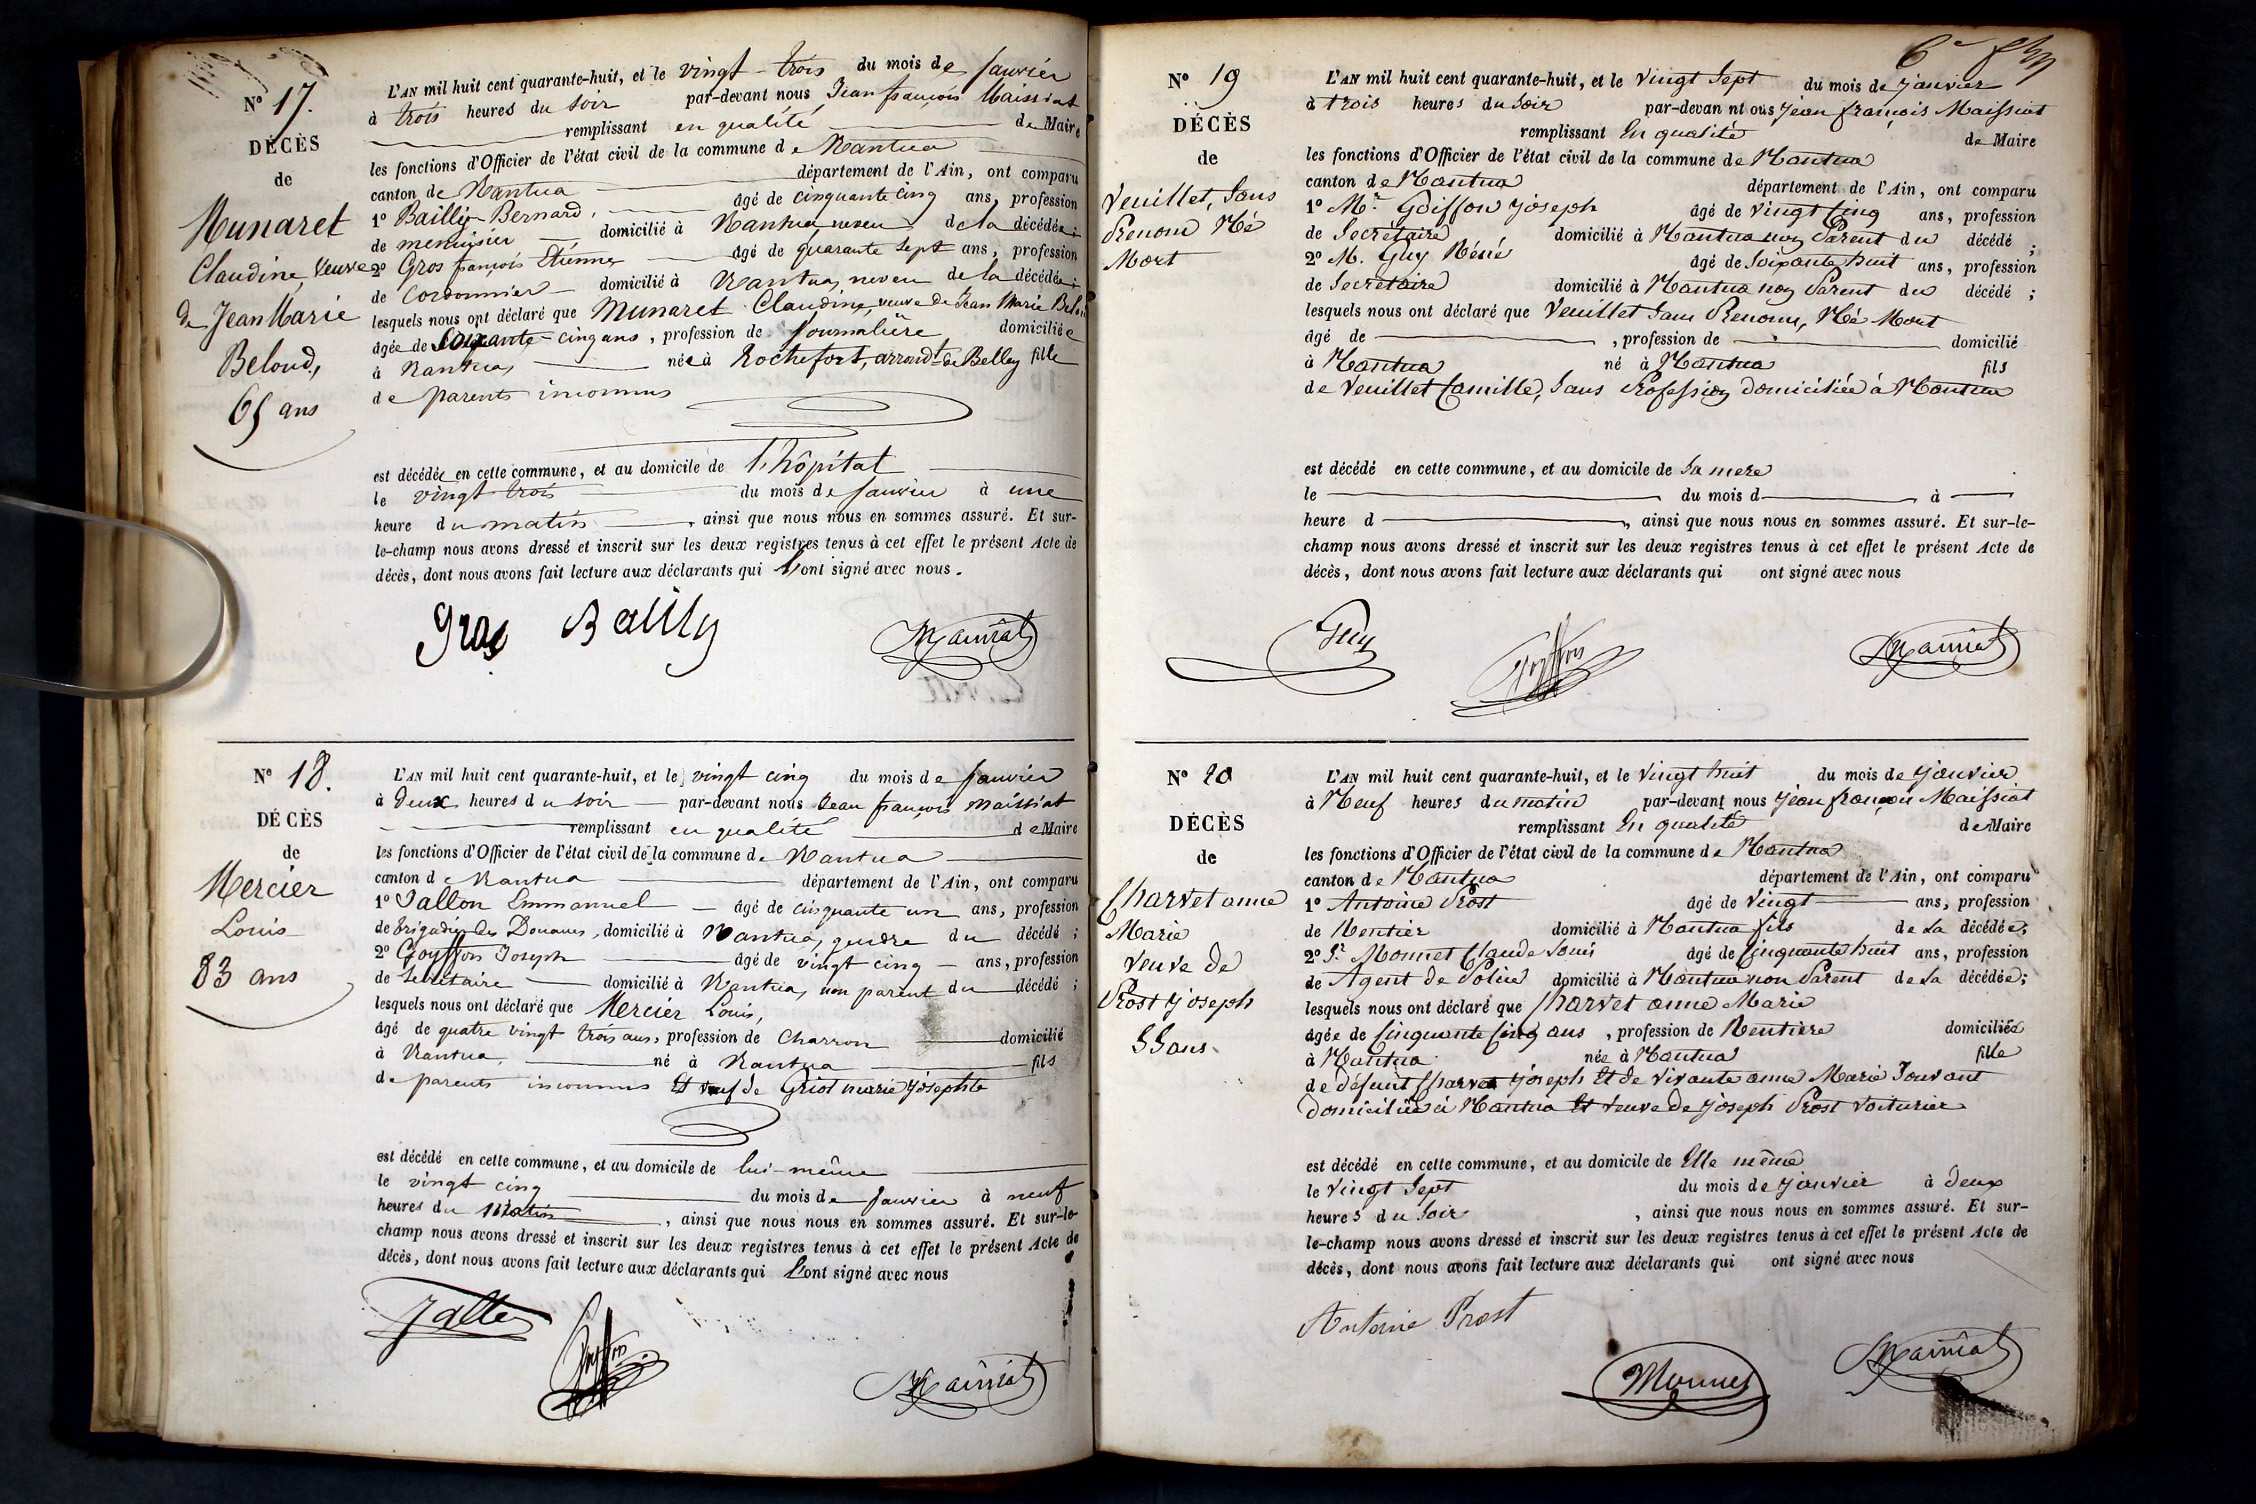 N° 17.
DÉCÈS
de
Munaret
Claudine, Veuve
de Jean Marie
Beloud,
65 ans
L'AN mil huit cent quarante-huit, et le vingt-trois du mois de janvier
à trois heures du soir par-devant nous Jean françois Maissiat
remplissant en qualité de Maire
les fonctions d'Officier de l'état civil de la commune de Nantua
canton de Nantua département de l'Ain, ont comparu
1° Bailly Bernard, âgé de cinquante cinq ans, profession
de menuisier domicilié à Nantua, neveu de la décédée;
2° Gros françois Etienne âgé de quarante sept ans, profession
de Cordonnier domicilié à Nantua, neveu de la décédée;
lesquels nous ont déclaré que Munaret Claudine, veuve de Jean Marie Beloud
âgée de Soixante-cinq ans, profession de journalière domiciliée
à Nantua, née à Rochefort, arrondt de Belley fille
de parents inconnus
est décédée en cette commune, et au domicile de l'hôpital
le vingt trois du mois de janvier à une
heure du matin, ainsi que nous nous en sommes assuré. Et sur-
le-champ nous avons dressé et inscrit sur les deux registres tenus à cet effet le présent Acte de
décès, dont nous avons fait lecture aux déclarants qui l'ont signé avec nous.
Gros Bailly Maissiat
N° 18.
DÉCÈS
de
Mercier
Louis
83 ans
L'AN mil huit cent quarante-huit, et le vingt cinq du mois de janvier
à deux heures du soir par-devant nous Jean françois Maissiat
remplissant en qualité de Maire
les fonctions d'Officier de l'état civil de la commune de Nantua
canton de Nantua département de l'Ain, ont comparu
1° Jallon Emmanuel âgé de cinquante un ans, profession
de brigadier des Douanes, domicilié à Nantua, gendre du décédé;
2° Goyffon Joseph âgé de vingt cinq ans, profession
de Secrétaire domicilié à Nantua, non parent du décédé;
lesquels nous ont déclaré que Mercier Louis,
âgé de quatre vingt trois ans, profession de Charron domicilié
à Nantua, né à Nantua fils
de parents inconnus Et veuf de Griot marie josephte
est décédé en cette commune, et au domicile de lui-même
le vingt cinq du mois de janvier à neuf
heures du Matin, ainsi que nous nous en sommes assuré. Et sur-le-
champ nous avons dressé et inscrit sur les deux registres tenus à cet effet le présent Acte de
décès, dont nous avons fait lecture aux déclarants qui l'ont signé avec nous
Jallon Goyffon Maissiat
6e
N° 19
DÉCÈS
de
Veuillet, Sans
Prenom Né
Mort
L'AN mil huit cent quarante-huit, et le vingt Sept du mois de janvier
à trois heures du soir par-devan nt ous jean françois Maissiat
remplissant En qualité de Maire
les fonctions d'Officier de l'état civil de la commune de Nantua
canton de Nantua département de l'Ain, ont comparu
1° Mr. Goiffon joseph âgé de vingt cinq ans, profession
de Secrétaire domicilié à Nantua non Parent du décédé;
2° M. Guy Réné âgé de Soixante huit ans, profession
de Secretaire domicilié à Nantua non Parent du décédé;
lesquels nous ont déclaré que Veuillet Sans Prenom, Né Mort
âgé de, profession de domicilié
à Nantua né à Nantua fils
de Veuillet Camille, Sans Profession domiciliée à Nantua
est décédé en cette commune, et au domicile de sa mere
le du mois d à
heure d, ainsi que nous nous en sommes assuré. Et sur-le-
champ nous avons dressé et inscrit sur les deux registres tenus à cet effet le présent Acte de
décès, dont nous avons fait lecture aux déclarants qui ont signé avec nous
Guy Goyffon Maissiat
N° 20
DÉCÈS
de
Charvet anne
Marie
veuve de
Prost joseph
55 ans.
L'AN mil huit cent quarante-huit, et le vingt huit du mois de janvier
à Neuf heures du matin par-devant nous jean françois Maissiat
remplissant En qualité de Maire
les fonctions d'Officier de l'état civil de la commune de Nantua
canton de Nantua département de l'Ain, ont comparu
1° Antoine Prost âgé de vingt ans, profession
de Rentier domicilié à Nantua fils de la décédée;
2° Sr. Monnet Claude Louis âgé de Cinquante huit ans, profession
de Agent de Police domicilié à Nantua non Parent de la décédée;
lesquels nous ont déclaré que Charvet anne Marie
âgée de Cinquante Cinq ans, profession de Rentière domiciliée
à Nantua née à Nantua fille
de défunt Charvet joseph Et de vivante anne Marie
domiciliée à Nantua Et veuve de joseph Prost voiturier
est décédé en cette commune, et au domicile de Elle même
le vingt Sept du mois de janvier à deux
heures du soir, ainsi que nous nous en sommes assuré. Et sur-
le-champ nous avons dressé et inscrit sur les deux registres tenus à cet effet le présent Acte de
décès, dont nous avons fait lecture aux déclarants qui ont signé avec nous
Antoine Prost
Monnet Maissiat